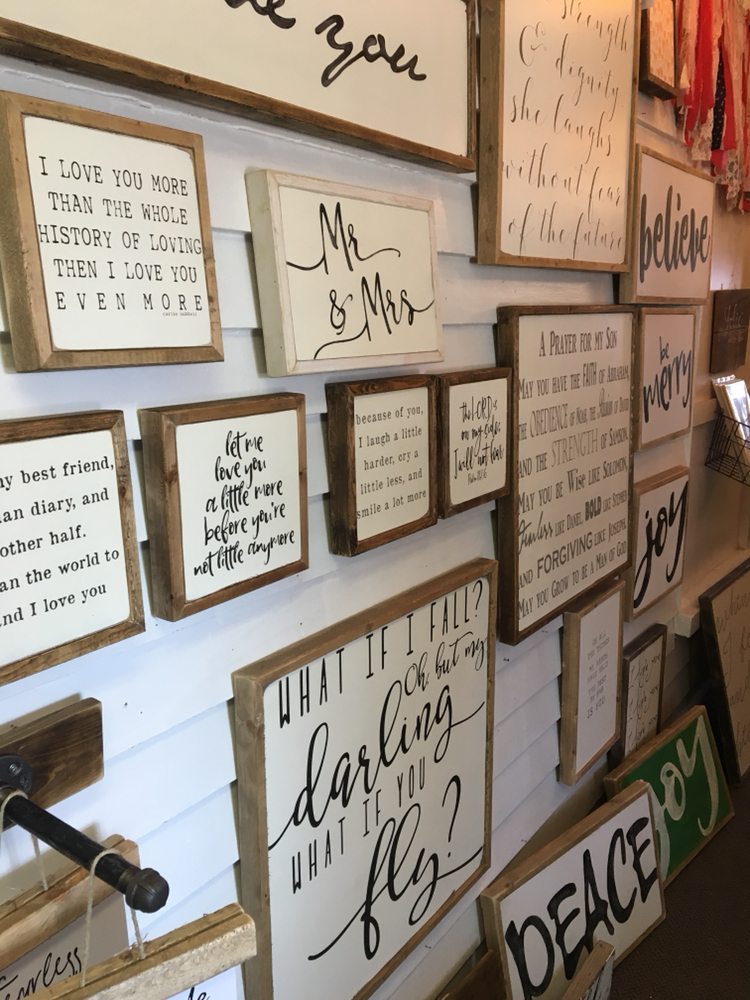 you
strength
& dignity
she laughs
without fear
of the future
I LOVE YOU MORE
THAN THE WHOLE
HISTORY OF LOVING
THEN I LOVE YOU
EVEN MORE
Mr
& Mrs
believe
A PRAYER FOR MY SON
MAY YOU HAVE THE FAITH OF ABRAHAM,
THE OBEDIENCE OF NOAH, THE OF DAVID
AND THE STRENGTH OF SAMSON.
MAY YOU BE WISE LIKE SOLOMON,
Fearless LIKE DANIEL, BOLD LIKE STEPHEN
AND FORGIVING LIKE JOSEPH.
MAY YOU GROW TO BE A MAN OF GOD
be
merry
joy
my best friend,
diary, and
other half.
the world to
and I love you
let me
love you
a little more
before you're
not little anymore
because of you,
I laugh a little
harder, cry a
little less, and
smile a lot more
the LORD is
on my side;
I will not fear
WHAT IF I FALL?
Oh, but my
darling
WHAT IF YOU
fly?
PEACE
joy